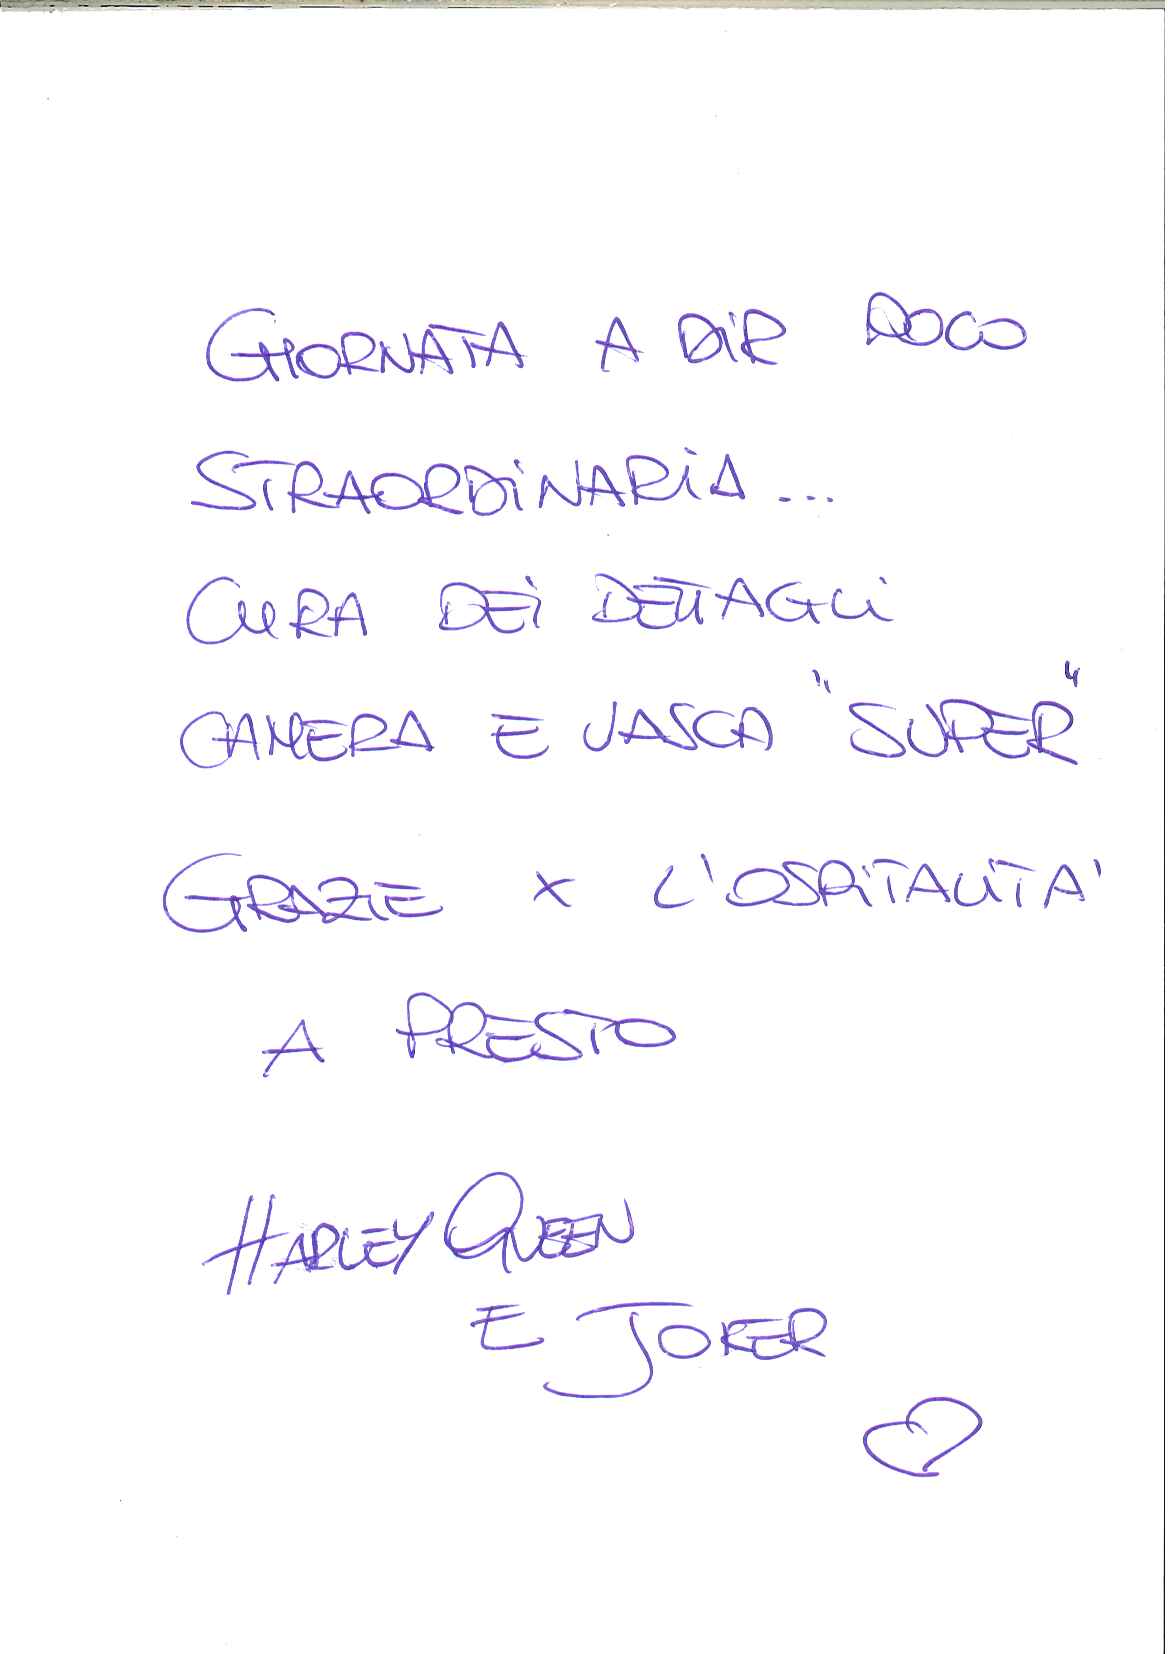 GIORNATA A DIR POCO
STRAORDINARIA...
CURA DEI DETTAGLI
CAMERA E VASCA "SUPER"
GRAZIE X L'OSPITALITA'
A PRESTO
HARLEY QUEEN
E JOKER